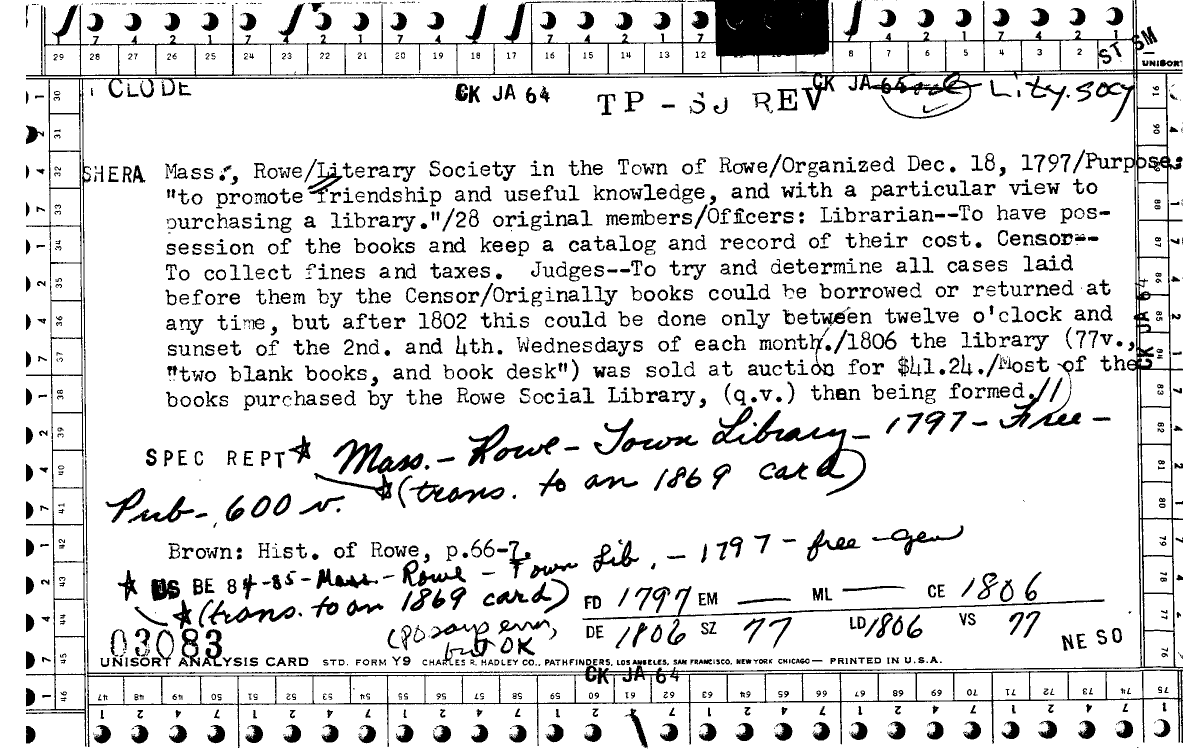 7 4 2 1 7 4 2 1 7 4 2 1 7 4 2 1 7 4 2 1 7 4 2 1
29 28 27 26 25 24 23 22 21 20 19 18 17 16 15 14 13 12 8 7 6 5 4 3 2 ST SM
UNISORT
CLODE CK JA 64 TP - SJ REV CK JA 64 Lity. socy
SHERA Mass., Rowe/Literary Society in the Town of Rowe/Organized Dec. 18, 1797/Purpose:
"to promote friendship and useful knowledge, and with a particular view to
purchasing a library."/28 original members/Officers: Librarian--To have pos-
session of the books and keep a catalog and record of their cost. Censor--
To collect fines and taxes. Judges--To try and determine all cases laid
before them by the Censor/Originally books could be borrowed or returned at
any time, but after 1802 this could be done only between twelve o'clock and
sunset of the 2nd. and 4th. Wednesdays of each month./1806 the library (77v.,
"two blank books, and book desk") was sold at auction for $41.24./Most of the
books purchased by the Rowe Social Library, (q.v.) then being formed.//
SPEC REPT Mass. - Rowe - Town Library - 1797 - Free -
(trans. to an 1869 card)
Pub - 600 v.
Brown: Hist. of Rowe, p.66-7.
US BE 84-85 - Mass. - Rowe - Town Lib. - 1797 - free - gen
(trans. to an 1869 card)
FD 1797 EM — ML — CE 1806
DE 1806 SZ 77 LD 1806 VS 77 NE SO
03083 but OK
UNISORT ANALYSIS CARD STD. FORM Y9 CHARLES R. HADLEY CO., PATHFINDERS, LOS ANGELES, SAN FRANCISCO, NEW YORK CHICAGO— PRINTED IN U.S.A.
CK JA 64
47 48 49 50 51 52 53 54 55 56 57 58 59 60 61 62 63 64 65 66 67 68 69 70 71 72 73 74 75
1 2 4 7 1 2 4 7 1 2 4 7 1 2 4 7 1 2 4 7 1 2 4 7 1 2 4 7 1